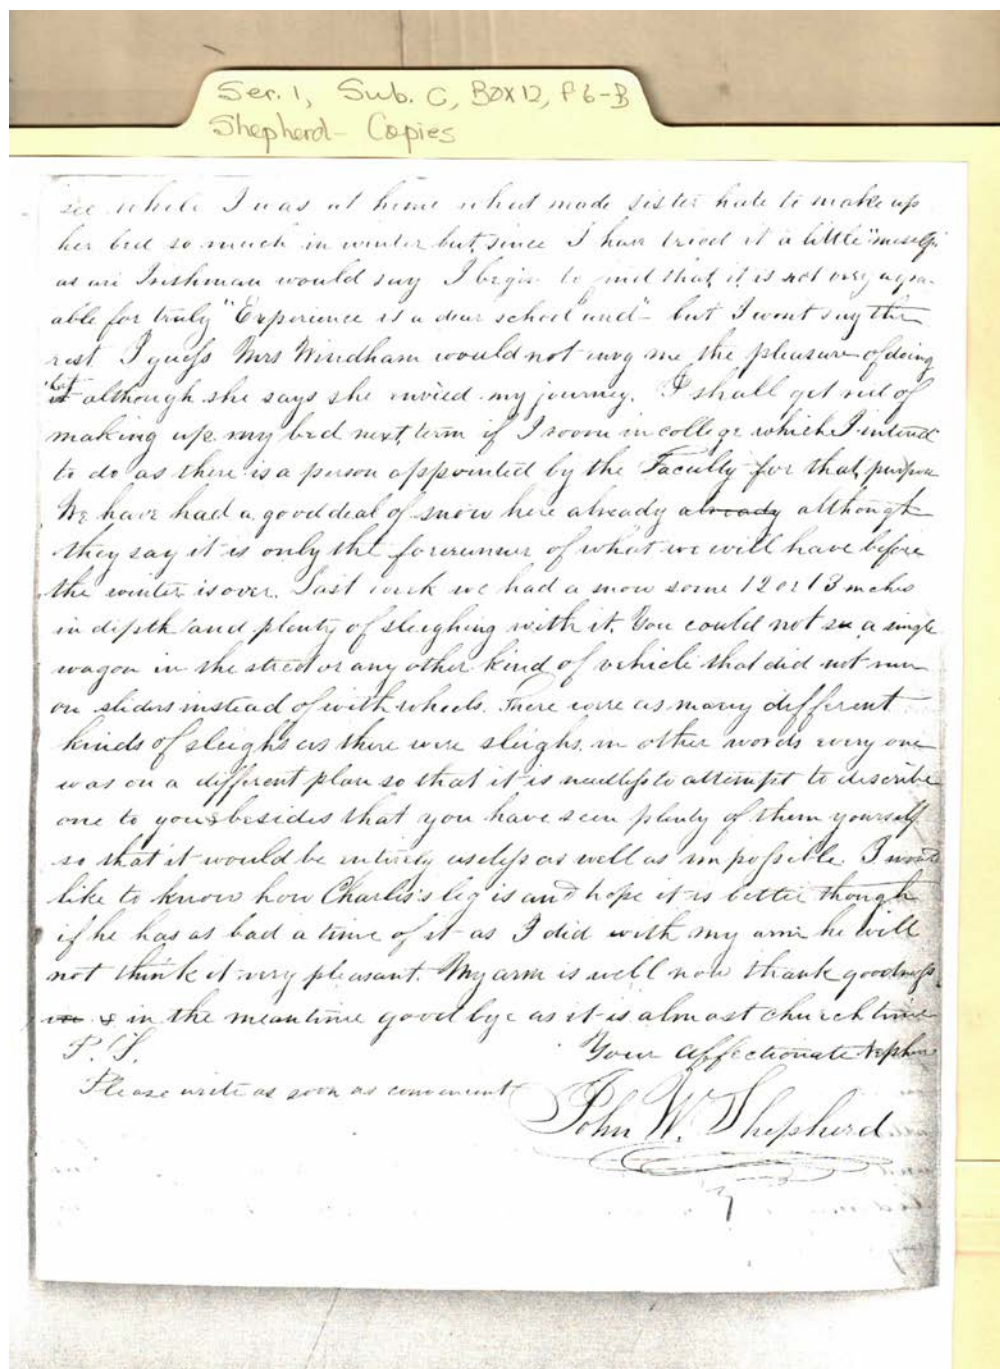 Ser. 1, Sub. C, Box 12, F 6-B
Shepherd - Copies
see while I was at home what made sister hate to make up
her bed so much in winter but, since I have tried it a little "meself"
as an Irishman would say I begin to find that it is not very agree-
able for truly "Experience is a dear school and" - but I wont say the
rest. I guess Mrs Windham would not envy me the pleasure of doing
it although she says she envied my journey. I shall get rid of
making up my bed next term if I room in college which I intend
to do as there is a person appointed by the Faculty for that purpose
We have had a good deal of snow here already already although
they say it is only the forerunner of what we will have before
the winter is over. Last week we had a snow some 12 or 13 inches
in depth and plenty of sleighing with it. You could not see a single
wagon in the street or any other kind of vehicle that did not run
on sliders instead of with wheels. There were as many different
kinds of sleighs as there were sleighs in other words every one
was on a different plan so that it is needless to attempt to describe
one to you & besides that you have seen plenty of them yourself
so that it would be entirely useless as well as impossible. I would
like to know how Charlis's leg is and hope it is better though
if he has as bad a time of it as I did with my arm he will
not think it very pleasant. My arm is well now thank goodness,
in the meantime good bye as it is almost church time
P.S. Your affectionate Nephew
Please write as soon as convenient
John W. Shepherd